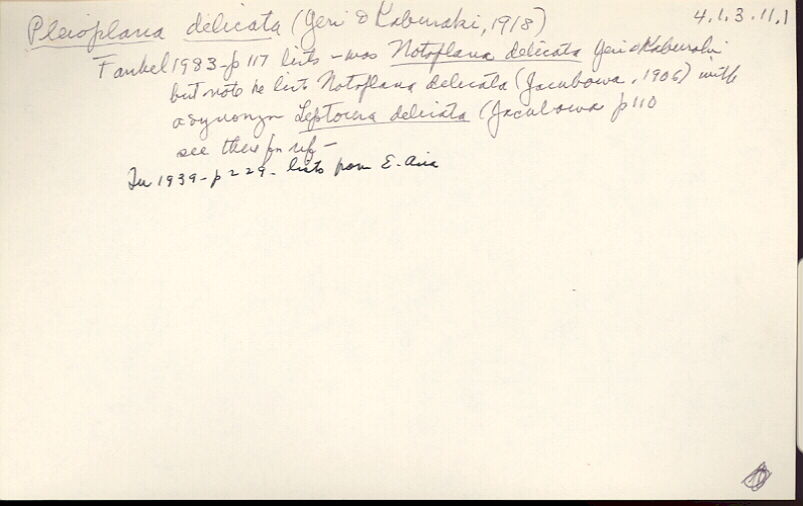 Pleioplana delicata (Yeri & Kaburaki, 1918)
4.1.3.11.1
Faubel 1983 - p 117 lists - was Notoplana delicata Yeri & Kaburaki
but note he lists Notoplana delicata (Jacubowa, 1906) with
a synonym Leptocera delicata (Jacubowa p 110
see there for ref -
Tu 1939 - p 229 - lists from E. Asia